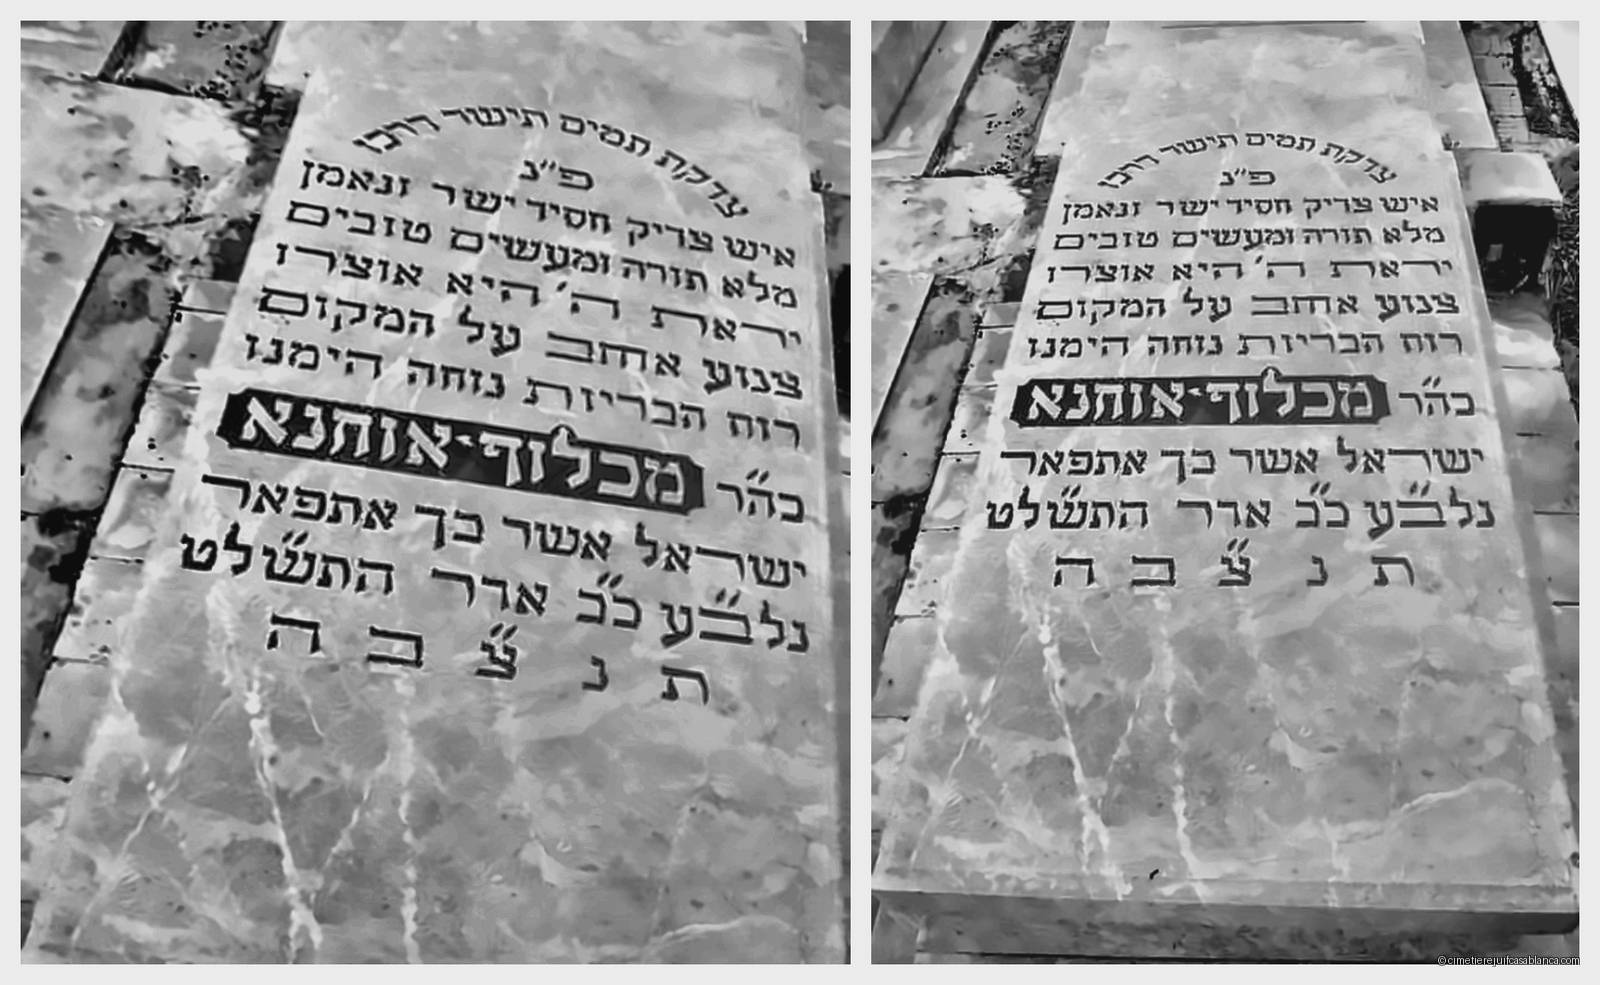 צדקת תמים תישר דרכו
פ״נ
איש צדיק חסיד ישר ונאמן
מלא תורה ומעשים טובים
יראת ה׳ היא אוצרו
צנוע אהוב על המקום
רוח הבריות נוחה הימנו
כה״ר מכלוף·אוחנא
ישראל אשר בך אתפאר
נלב״ע כ״ב אדר התש״לט
ת נ צ״ ב ה
צדקת תמים תישר דרכו
פ״נ
איש צדיק חסיד ישר ונאמן
מלא תורה ומעשים טובים
יראת ה׳ היא אוצרו
צנוע אהוב על המקום
רוח הבריות נוחה הימנו
כה״ר מכלוף·אוחנא
ישראל אשר בך אתפאר
נלב״ע כ״ב אדר התש״לט
ת נ צ״ ב ה
©cimetierejuifcasablanca.com